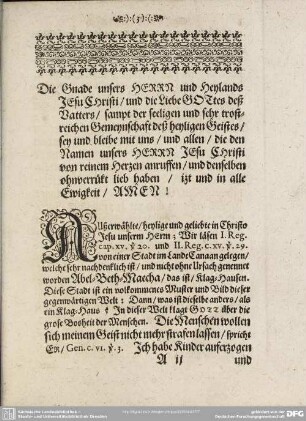 (3)
Die Gnade unsers HERRN und Heylands
JEsu Christi / und die Liebe GOttes deß
Vatters / sampt der seeligen und sehr trost-
reichen Gemeynschaft deß heyligen Geistes /
sey und bleibe mit uns / und allen / die den
Namen unsers HERRN JEsu Christi
von reinem Herzen anruffen / und denselben
ohnverrükt lieb haben / izt und in alle
Ewigkeit / AMEN!
AUßerwählte / heylige und geliebte in Christo
Jesu unserm HErrn: Wir läsen I. Reg.
cap. xv. ꝟ 20. und II. Reg. c. xv. ꝟ. 29.
von einer Stadt im Land Canaan gelegen /
welche sehr nachdenklich ist / und nicht ohne Ursach genennet
worden Abel-Beth-Maecha / das ist / Klag-Hausen.
Diese Stadt ist ein vollkommenes Muster und Bild dieser
gegenwärtigen Welt: Dann / was ist dieselbe anders / als
ein Klag-Haus? In dieser Welt klagt GOtt über die
große Bosheit der Menschen. Die Menschen wollen
sich meinem Geist nicht mehr strafen lassen / spricht
Er / Gen. c. vi. ꝟ. 3. Ich habe Kinder auferzogen
A ij und